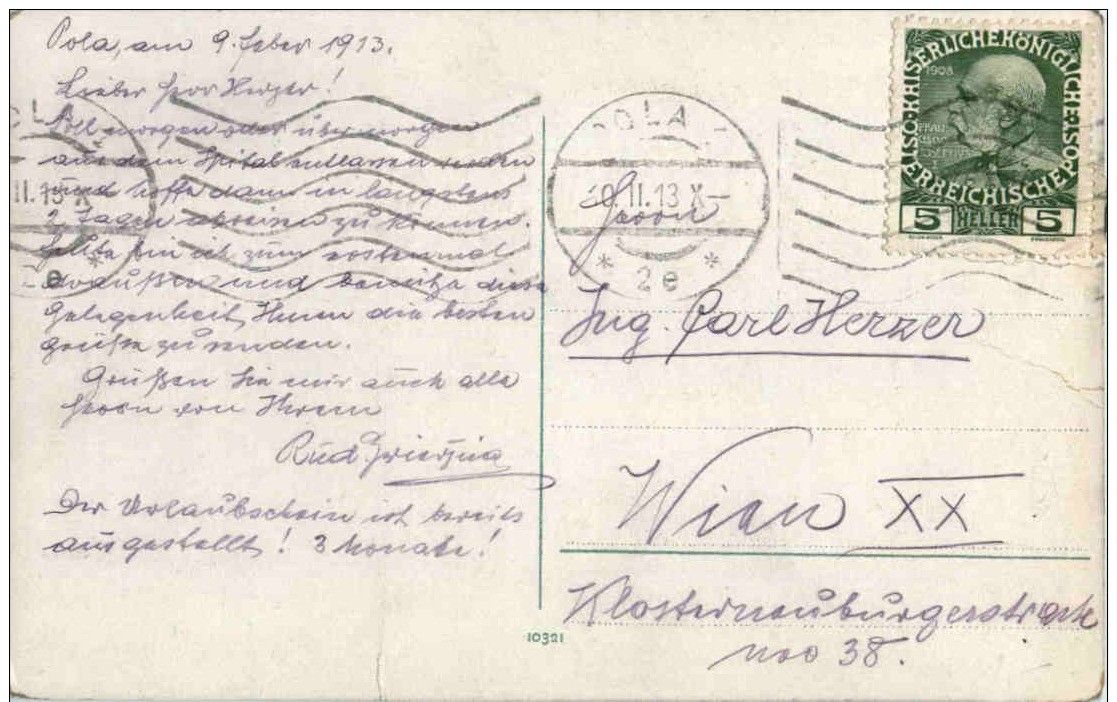 Pola, am 9. Feber 1913.
Lieber Herr Herzer!
Soll morgen oder übermorgen
aus dem Spital entlassen werden
und hoffe dann in längstens
2 Tagen abreisen zu können.
Heute bin ich zum erstenmal
draußen und benütze diese
Gelegenheit, Ihnen die besten
Grüße zu senden.
Grüßen Sie mir auch alle
Herrn von Ihrem
Rud.
Der Urlaubschein ist bereits
ausgestellt! 3 Monate!
10321
POLA
10.II.13 X
* 2e *
OLA
II.13 X
e *
KAISERLICHE KÖNIGLICHE ÖSTERREICHISCHE POST
1908
5 HELLER 5
Herrn
Ing. Carl Herzer
Wien XX
Klosterneuburgerstraße
nro 38.